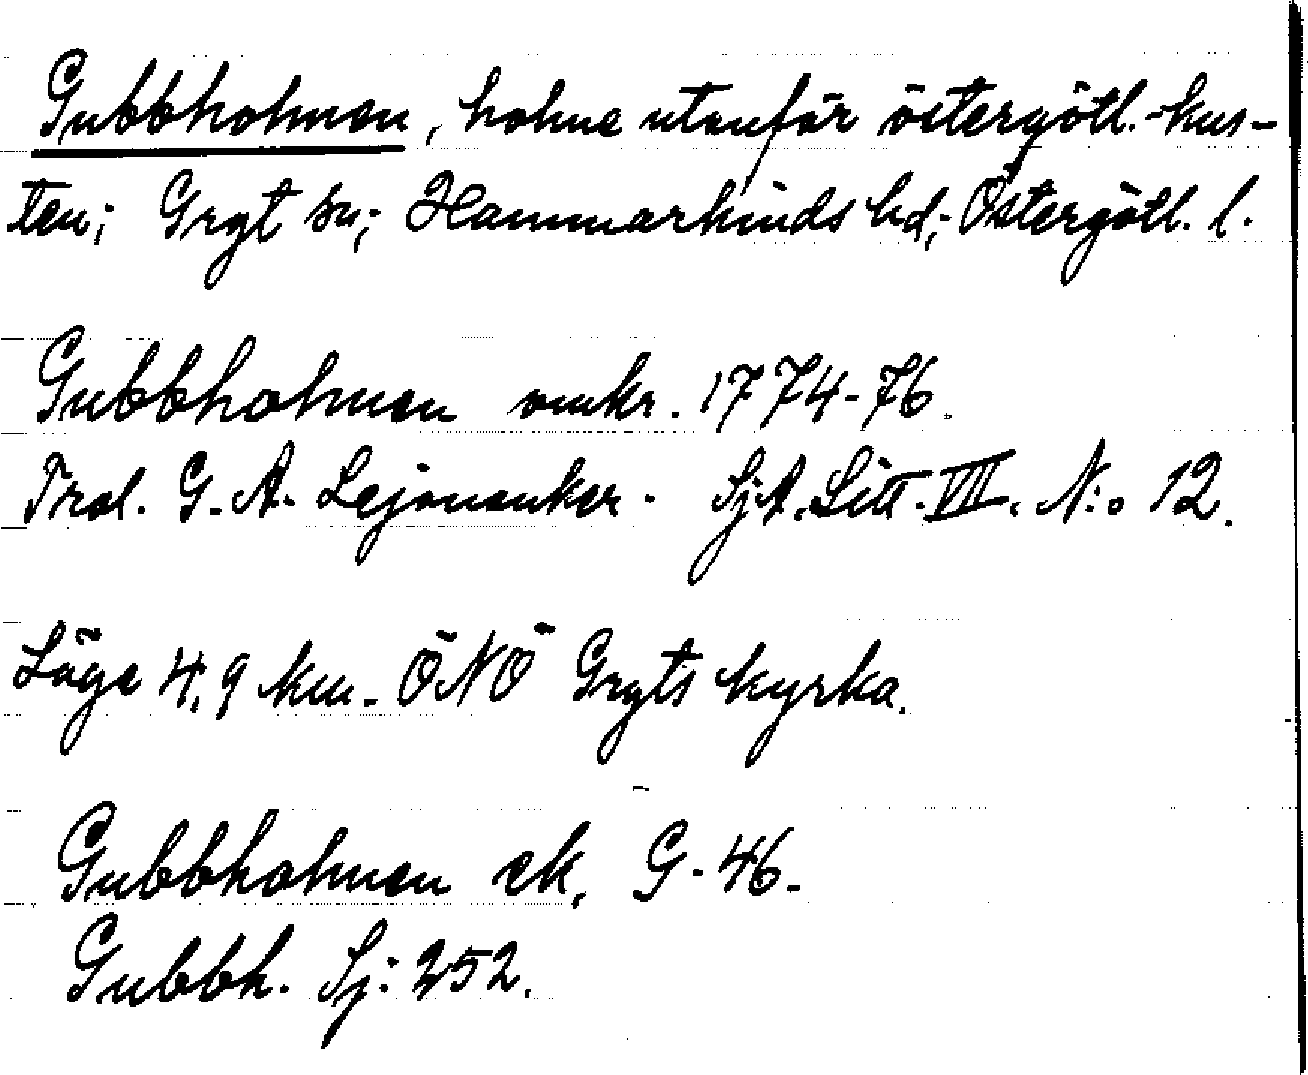 Gubbholmen, holme utanför östergötl.-kus-
ten; Gryt sn; Hammarkinds hd; Östergötl. l.
Gubbholmen omkr. 1774-76.
Trol. G. A. Lejonanker. SjA. Litt. VIII. N:o 12.
Läge 4,9 km. ÖNÖ Gryts kyrka.
Gubbholmen ek. G. 46.
Gubbh. Sj: 252.